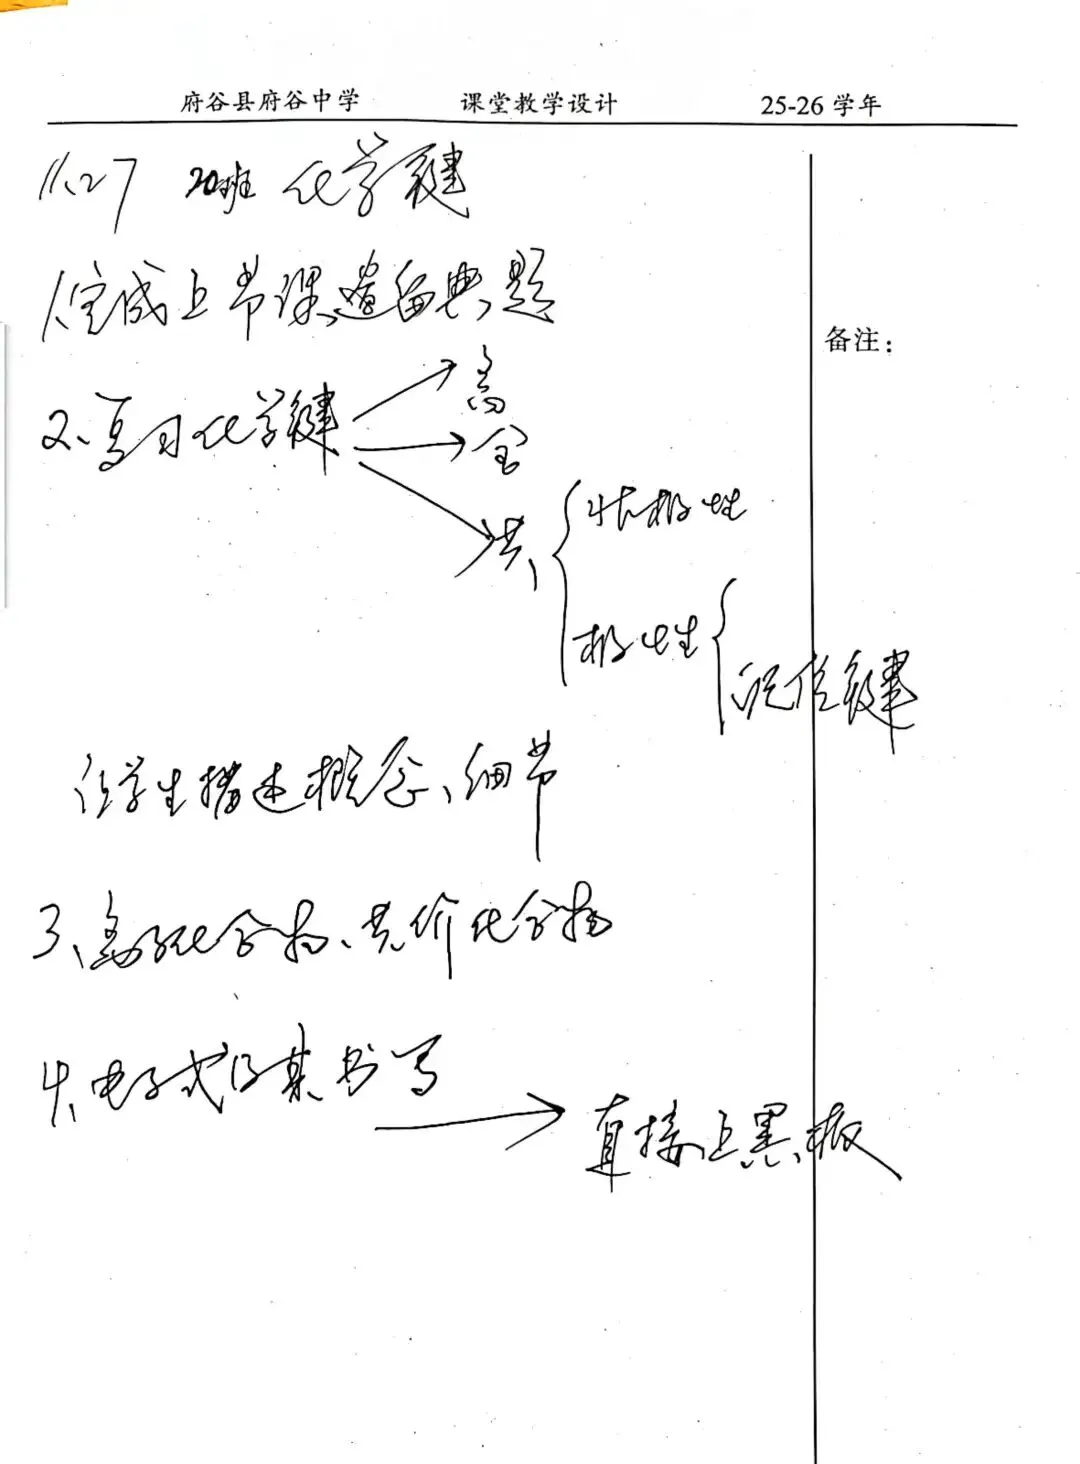 府谷县府谷中学 课堂教学设计 25-26 学年
11.27 20班 化学键
1.完成上节课遗留典题
备注：
2、复习化学键
离
金
共
非极性
极性
配位键
让学生描述概念、细节
3、离子化合物、共价化合物
4、电子式及其书写
直接上黑板